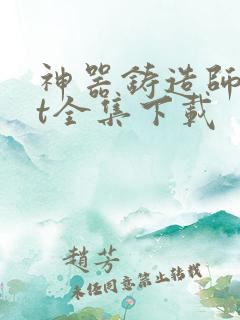 神器鑄造師
t全集下載
趙芳
未經同意禁止轉載